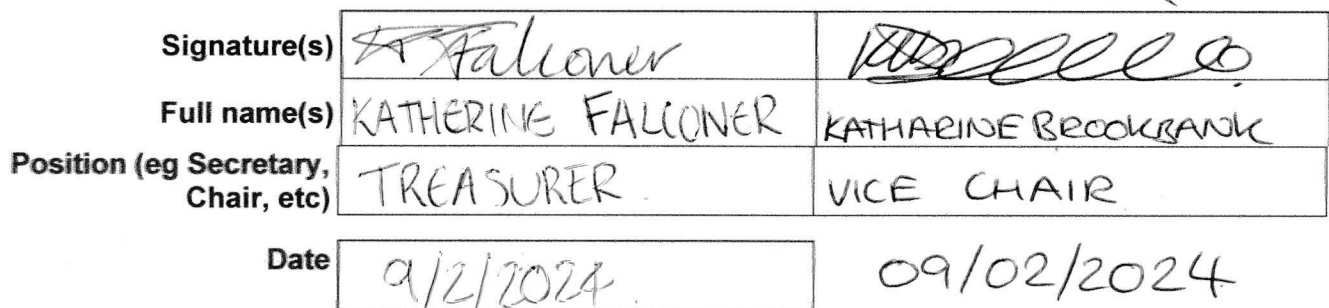 Signature(s) K Falconer
Full name(s) KATHERINE FALCONER KATHARINE BROOKBANK
Position (eg Secretary, TREASURER VICE CHAIR
Chair, etc)
Date 9/2/2024 09/02/2024